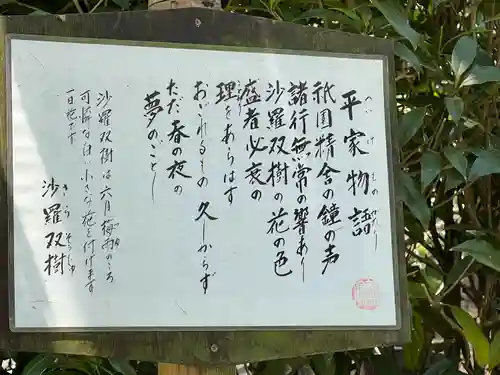 平家物語
へいけものがたり
祇園精舎の鐘の声
諸行無常の響あり
沙羅双樹の花の色
盛者必衰の
理をあらはす
おごれるもの久しからず
ただ春の夜の
夢のごとし
沙羅双樹は六月梅雨のころ
可憐な白い小さな花を付けます
一日花です
さらそうじゅ
沙羅双樹